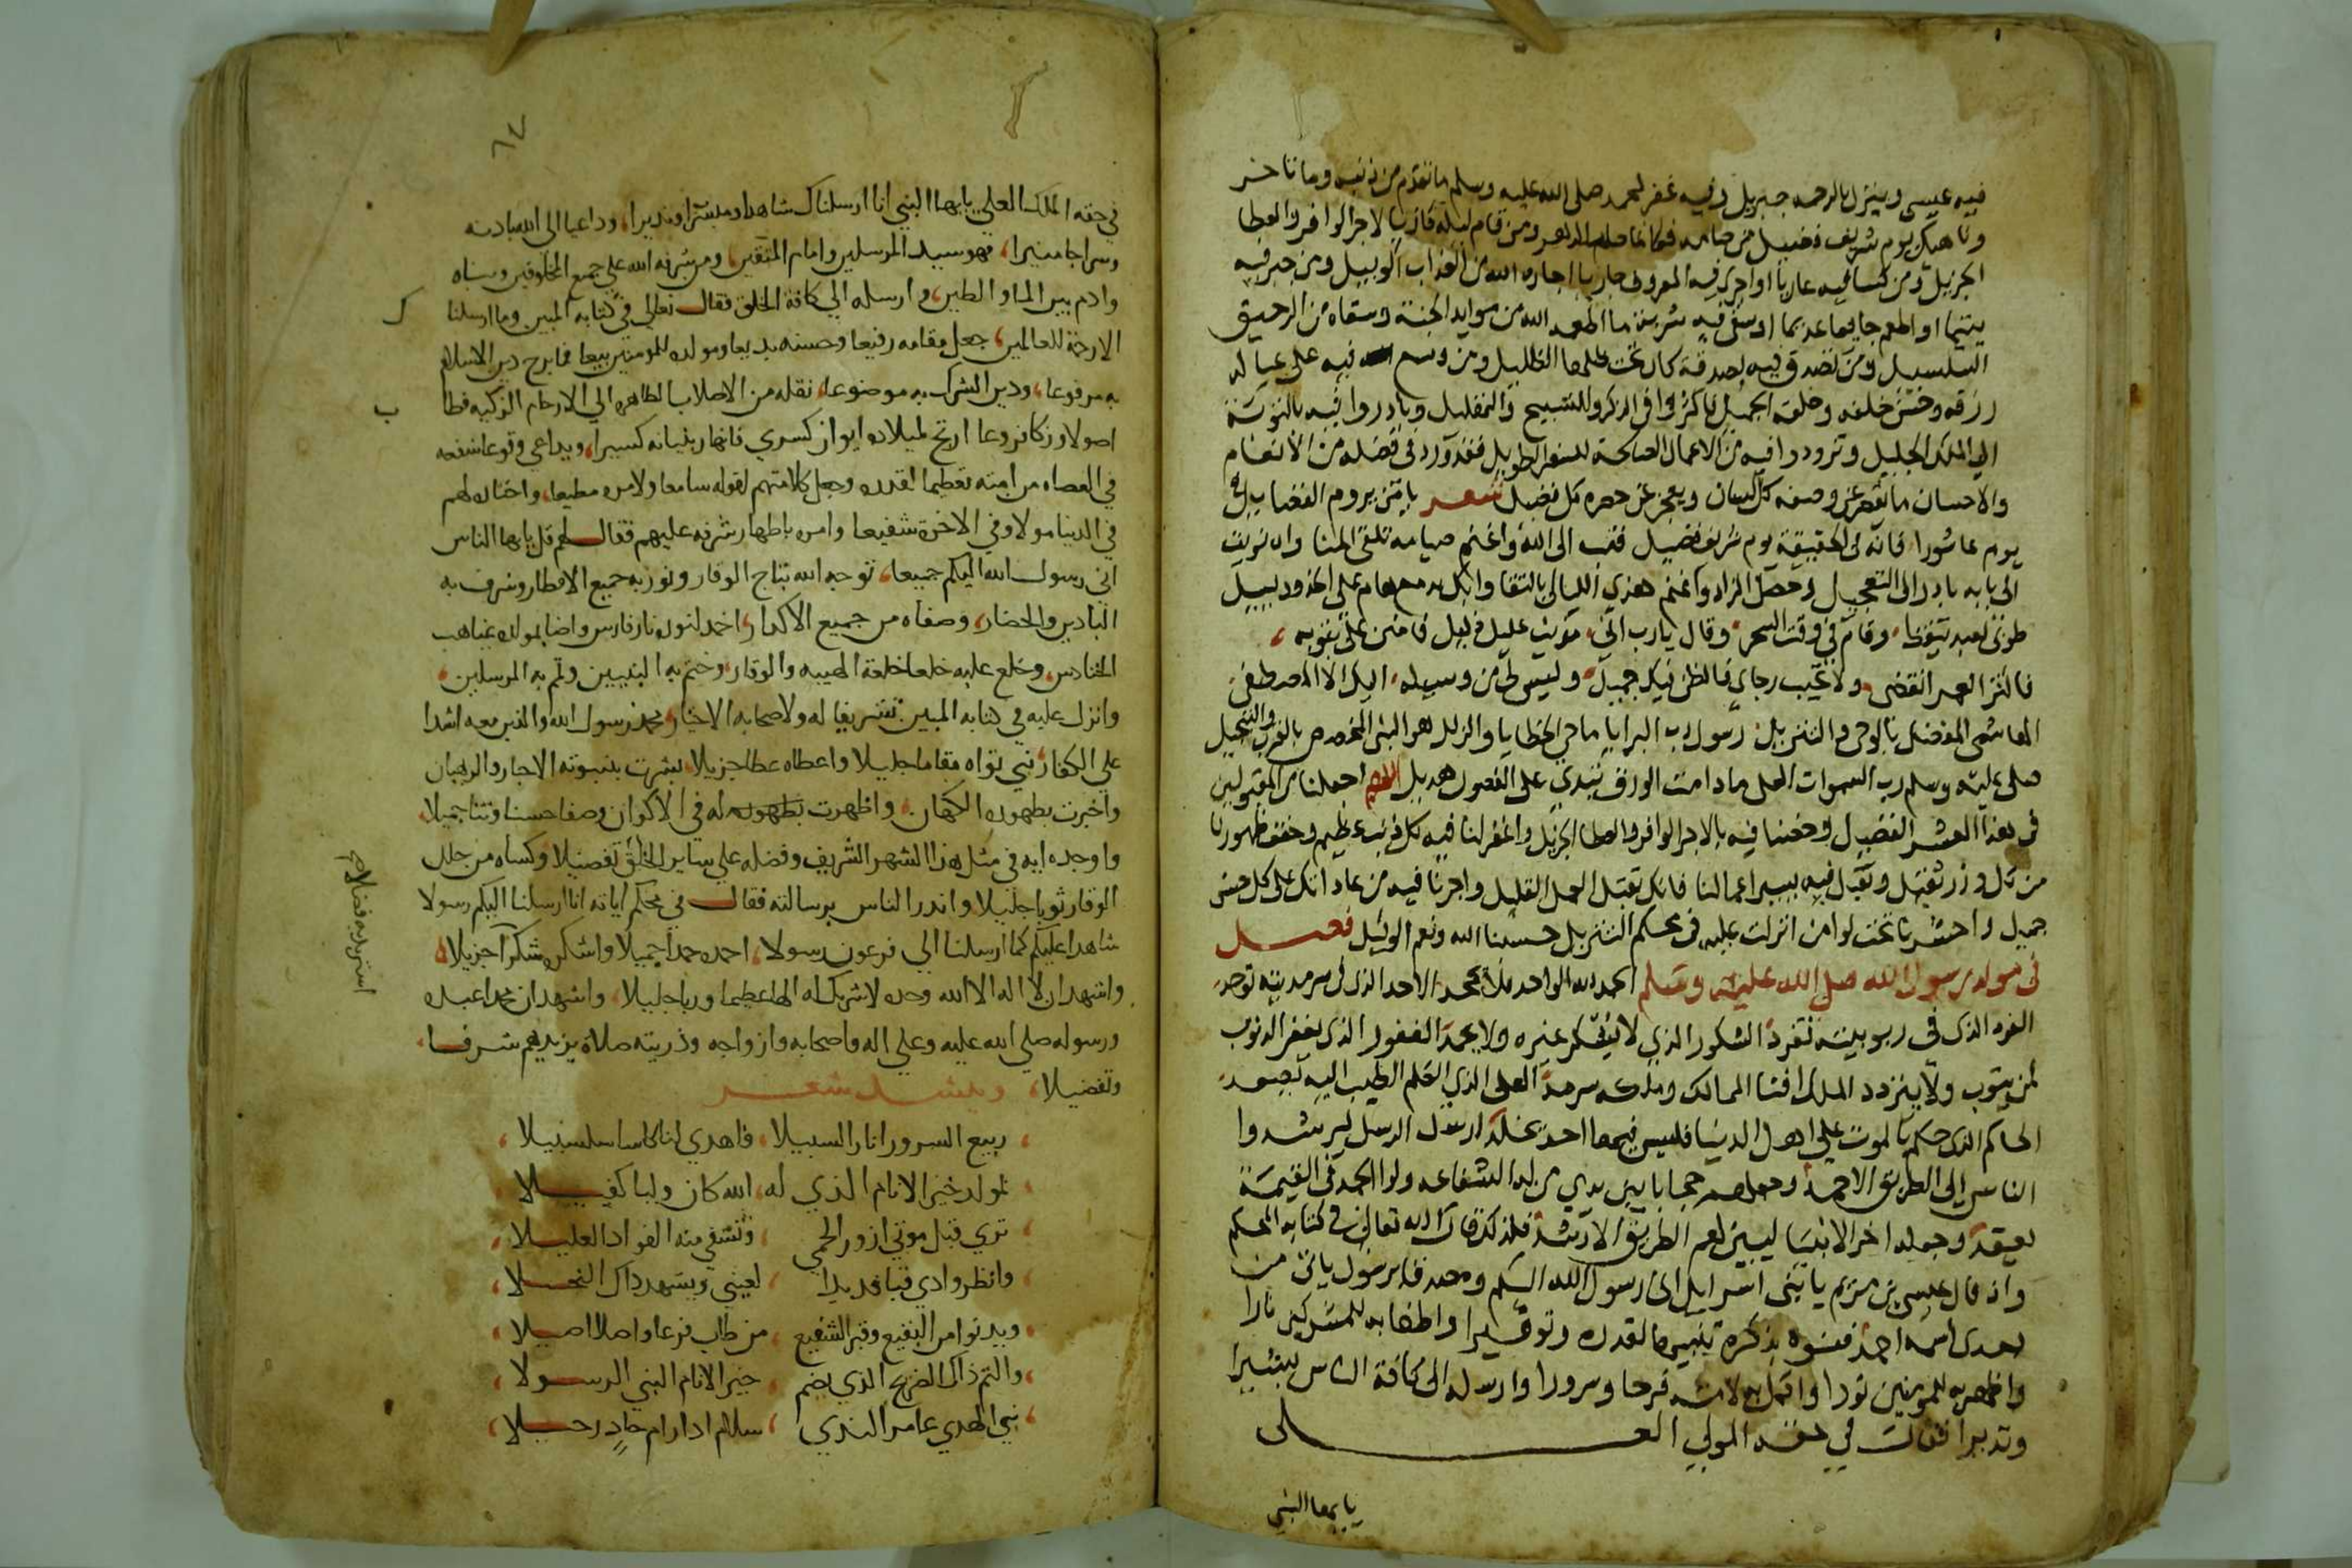 فيه عيسى وينزل بالرحمه جبريل وفيه غفر لمحمد صلى الله عليه وسلم ما تقدم من ذنبه وما تاخر
وناهيك بيوم شريف فضيل من صامه فكانما صام الدهر ومن قام ليله فاز بالاجر الوافر والعطا
الجزيل ومن كسا فيه عاريا او اجرى فيه المعروف جاريا اجاره الله من العذاب الوبيل ومن جبر فيه
يتيما او اطعم جايعا عديما او سقى فيه شربة ما اطعمه الله من موايد الجنة وسقاه من الرحيق
السلسبيل ومن تصدق فيه بصدقة كان تحت ظلها الظليل ومن وسع فيه على عياله
رزقه وحسن خلقه وخلقه الجميل فاكثروا في الذكر والتسبيح والتهليل وبادروا فيه بالتوبة
الى الملك الجليل وتزودوا فيه من الاعمال الصالحة للسفر الطويل فقد ورد في فضله من الانعام
والاحسان ما يقصر عن وصفه كل لسان ويعجز عن حصره كل فضيل شعر يا من يروم الفضايل في
يوم عاشورا فانه في الحقيقة يوم شريف فضيل فتب الى الله واغنم صيامه تلقى المنا وان نويت
الى بابه بادر الى التعجيل وحصل الزاد واغنم هذي الليالي بالتقا وابك بدمع هام على الخدود يسيل
طوبى لعبد تيقظا وقام في وقت السحر وقال يارب اني مويت عليل ذليل فامنن علي بتوبه
فاكثر العمر انقضى ولا تخيب رجاي فالظن فيك جميل وليس لي من وسيله اليك الا المصطفى
الهاشمي المفضل بالوحي والتنزيل رسول رب البرايا ماحي الخطايا والزلل هو النبي المخصوص بالقرب والتبجيل
صلى عليه وسلم رب السموات العلى مادامت الورق تبدي على الغصون هديل اللهم اجعلنا من المقبولين
في هذا العشر الفضيل وخصنا فيه بالاجر الوافر والعطا الجزيل واغفر لنا فيه كل ذنب عظيم وخفف ظهورنا
من كل وزر ثقيل وتقبل فيه يسير اعمالنا فانك تقبل العمل القليل واجرنا فيه من عادانك على كل حسن
جميل واحشرنا تحت لوا من انزلت عليه في محكم التنزيل حسبنا الله ونعم الوكيل فصل
في مولد رسول الله صلى الله عليه وسلم الحمد لله الواحد فلا يجحد الاحد الذي في سرمديته توحد
الفرد الذي في ربوبيته تفرد الشكور الذي لا يشكر غيره ولا يحمد الغفور الذي يغفر الذنوب
لمن يتوب ولا يتردد الملك افنا الممالك وملكه سرمد العلي الذي الكلم الطيب اليه يصعد
الحاكم الذي حكم بالموت على اهل الدنيا فليس فيها احد يخلد ارسل الرسل ليرشدوا
الناس الى الطريق الاحمد وجعلهم حجابا بين يدي من له الشفاعه ولوا الحمد في القيمة
يعقد وجعله اخر الانبيا ليبين لهم الطريق الارشد فلذلك قال الله تعالى في كتابه المحكم
واذ قال عيسى بن مريم يا بني اسرايل اني رسول الله اليكم ومصدقا برسول ياتي من
بعدي اسمه احمد فنوه بذكره تنبيها لقدره وتوقيرا واطفا به للمشركين نارا
واظهر به للمومنين نورا وافتمل به لامته فرحا وسرورا وارسله الى كافة الناس بشيرا
ونذيرا فقال في حقه المولى العلى
يا يها النبي
٦٧
في حقه الملك العلي يا يها النبي انا ارسلناك شاهدا ومبشرا ونذيرا وداعيا الى الله باذنه
وسراجا منيرا فهو سيد المرسلين وامام المتقين ومن شرفه الله على جميع المخلوقين ونباه
وادم بين الما والطين وارسله الي كافة الخلق فقال تعالى في كتابه المبين وما ارسلنا
ك
الا رحمة للعالمين جعل مقامه رفيعا وحسنه بديعا ومولده للمومنين ربيعا فما برح دين الاسلام
به مرفوعا ودين الشرك به موضوعا نقله من الاصلاب الطاهره الي الارحام الزكيه فطا
ب
اصولا وزكا فروعا ارتج لميلاده ايوان كسري فانهار بنيانه كسيرا ويداعي وقوعا شفعه
في العصاه من امته تعظيما لقدره وجعل كلا منهم لقوله سامعا ولامره مطيعا واختاره لهم
في الدنيا مولا وفي الاخرة شفيعا وامره باظهار شرفه عليهم فقال لهم قل يا يها الناس
اني رسول الله اليكم جميعا توجه الله بتاج الوقار ونور به جميع الاقطار وشرف به
البادين والحضار وصفاه من جميع الاكدار واخمد لنوره نار فارس واضا بمولده غياهب
الحنادس وخلع عليه خلعا خلعة الهيبه والوقار وختم به النبيين وتم به المرسلين
وانزل عليه في كتابه المبين تشريفا له ولاصحابه الاخيار محمد رسول الله والذين معه اشدا
على الكفار نبي بواه مقاما جليلا واعطاه عطا جزيلا بشرت بنبوته الاحبار والرهبان
واخبرت بظهوره الكهان واظهرت بظهوره له في الاكوان وصفا حسنا وثنا جميلا
واوجده ايه في مثل هذا الشهر الشريف وفضله على ساير الخلق تفضيلا وكساه من حلل
الوقار ثوبا جليلا وانذر الناس برسالته فقال في محكم اياته انا ارسلنا اليكم رسولا
شاهدا عليكم كما ارسلنا الي فرعون رسولا احمده حمدا جميلا واشكره شكرا جزيلا
واشهد ان لا اله الا الله وحده لا شريك له الها عظيما وربا جليلا واشهد ان محمدا عبده
ورسوله صلى الله عليه وعلى اله واصحابه وازواجه وذريته صلاة يزيدهم شرفا
وتفضيلا وينشد شعر
ربيع السرور انار السبيلا فاهدي لنا كاسا سلسبيلا
لمولد خير الانام الذي له الله كان وليا كفيلا
تري قبل موتي ازور الحمي وتشفي منه الفواد العليلا
وانظر وادي قبا قد بدا لعيني ويشهد ذاك النخيلا
ويدنوا من البقيع وقبر الشفيع من طاب فرعا واصلا اصيلا
والثم ذاك الضريح الذي يضم خير الانام النبي الرسولا
نبي الهدي عامر الندي سلام اذا رام حاد رحيلا